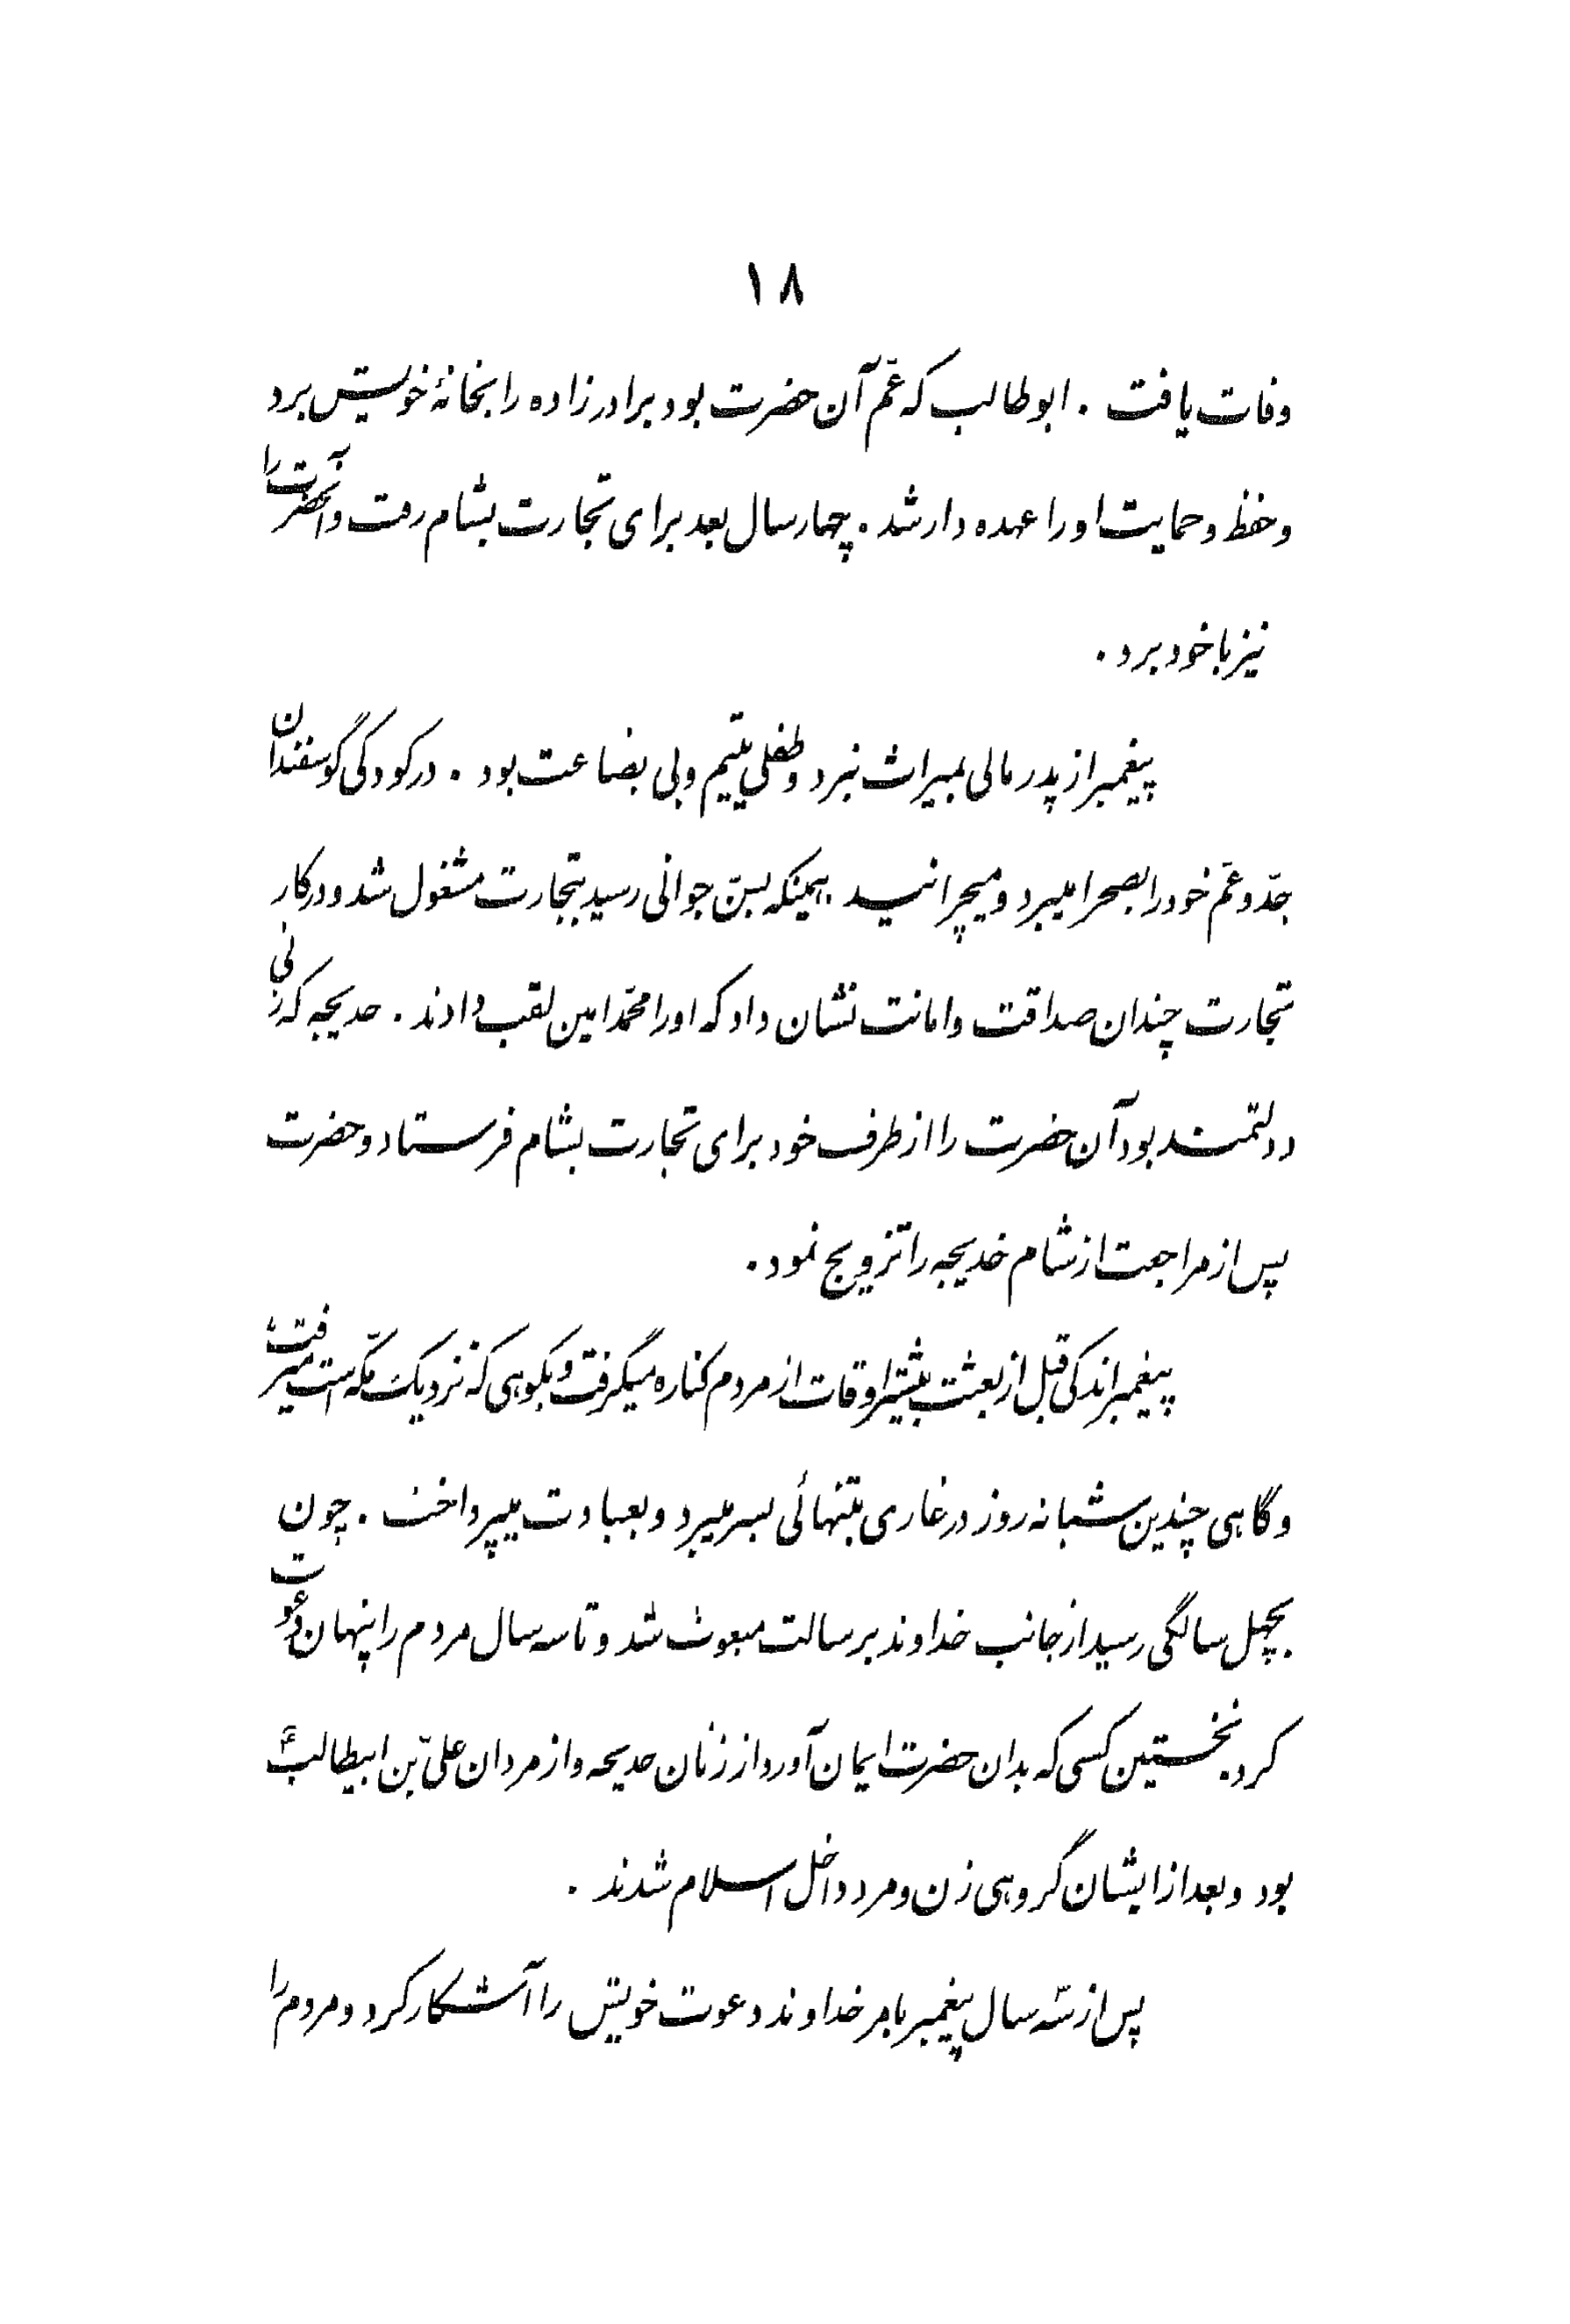 ۱۸
وفات یافت . ابوطالب که عمّ آن حضرت بود برادرزاده را بخانهٔ خویش برد
و حفظ و حمایت او را عهده دار شد . چهار سال بعد برای تجارت بشام رفت و آنحضرت را
نیز با خود برد .
پیغمبر از پدر مالی بمیراث نبرد و طفلی یتیم و بی بضاعت بود . در کودکی گوسفندان
جدّ و عمّ خود را بصحرا میبرد و میچرانید همینکه بسنّ جوانی رسید بتجارت مشغول شد و در کار
تجارت چندان صداقت و امانت نشان داد که او را محمّد امین لقب دادند . خدیجه که زنی
دولتمند بود آن حضرت را از طرف خود برای تجارت بشام فرستاد و حضرت
پس از مراجعت از شام خدیجه را تزویج نمود .
پیغمبر اندکی قبل از بعثت بیشتر اوقات از مردم کناره میگرفت و بکوهی که نزدیک مکّه است میرفت
و گاهی چندین شبانه روز در غاری بتنهائی بسر میبرد و بعبادت میپرداخت . چون
بچهل سالگی رسید از جانب خداوند برسالت مبعوث شد و تا سه سال مردم را پنهان دعوت
کرد . نخستین کسی که بدان حضرت ایمان آورد از زنان خدیجه و از مردان علیّ بن ابیطالب ع
بود و بعد از ایشان گروهی زن و مرد داخل اسلام شدند .
پس از سه سال پیغمبر بامر خداوند دعوت خویش را آشکار کرد و مردم را